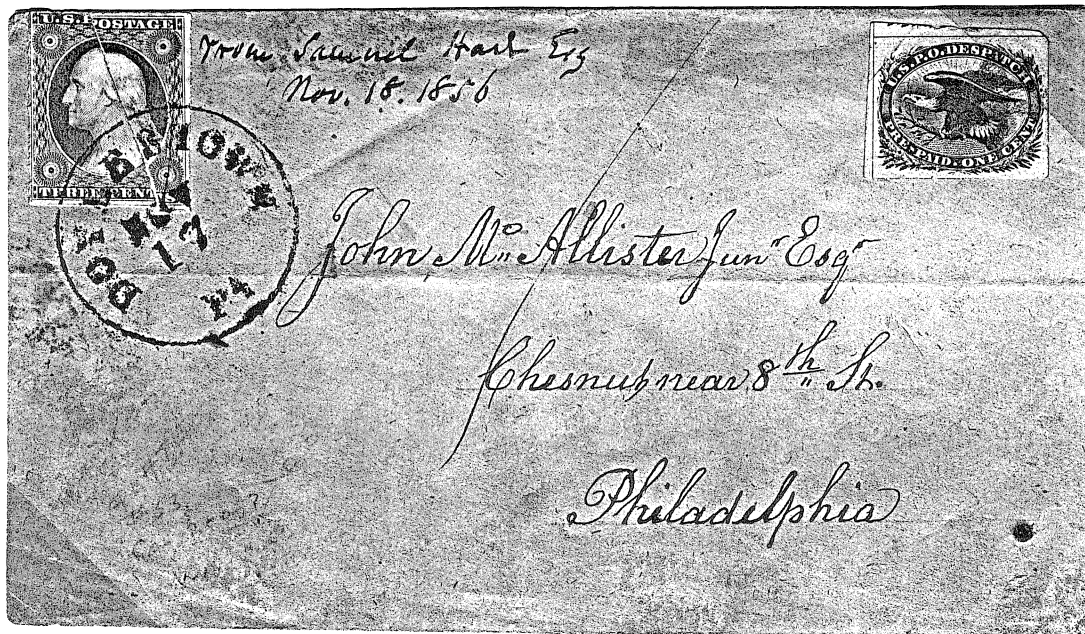 U.S. POSTAGE
THREE CENTS
From Samuel Hart Esq
Nov. 18. 1856
U.S.P.O. DESPATCH
PRE-PAID. ONE CENT
DOYLESTOWN
NOV
17
PA
John McAllister Junr Esqr
Chesnut near 8th St.
Philadelphia